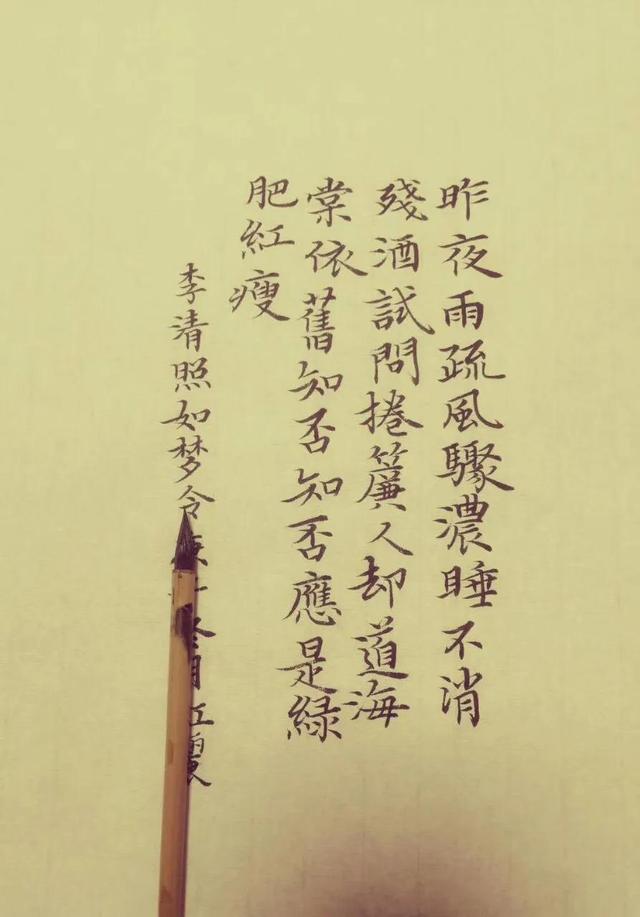 昨夜雨疏風驟濃睡不消
殘酒試問捲簾人却道海
棠依舊知否知否應是綠
肥紅瘦
李清照如梦令